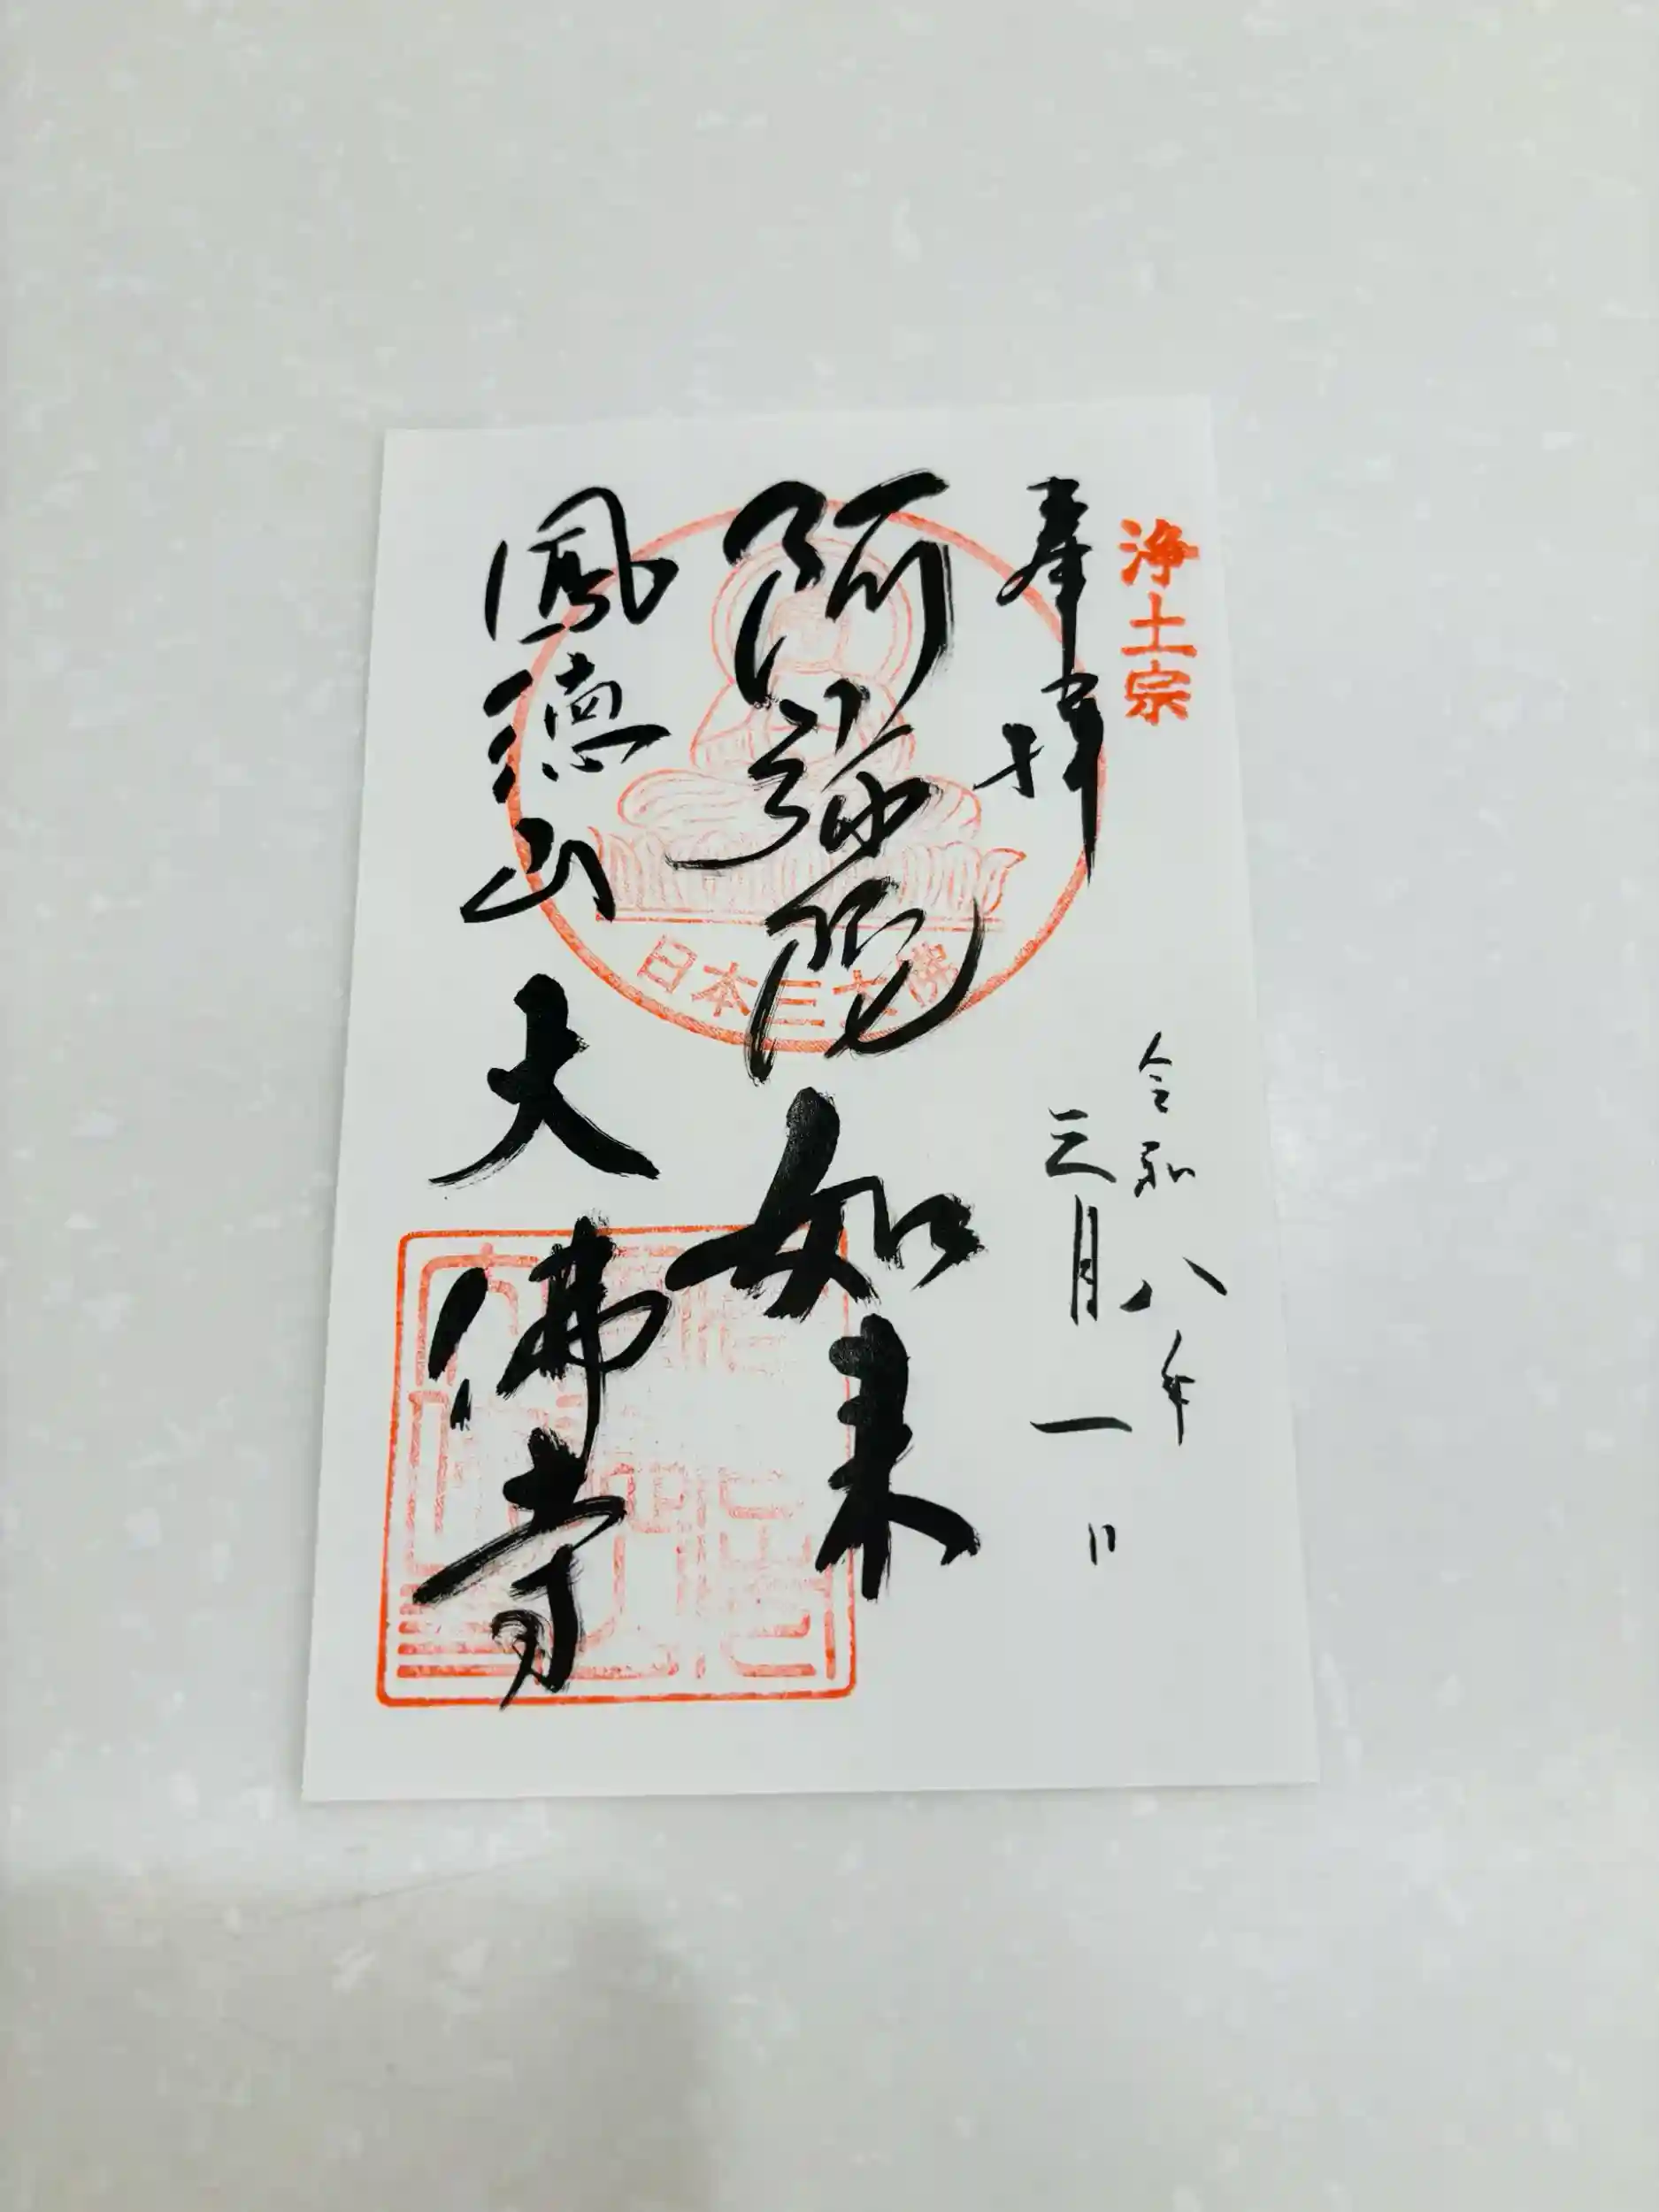 浄土宗
奉拝
令和八年
三月一日
阿弥陀如来
鳳徳山
大佛寺
日本三大佛